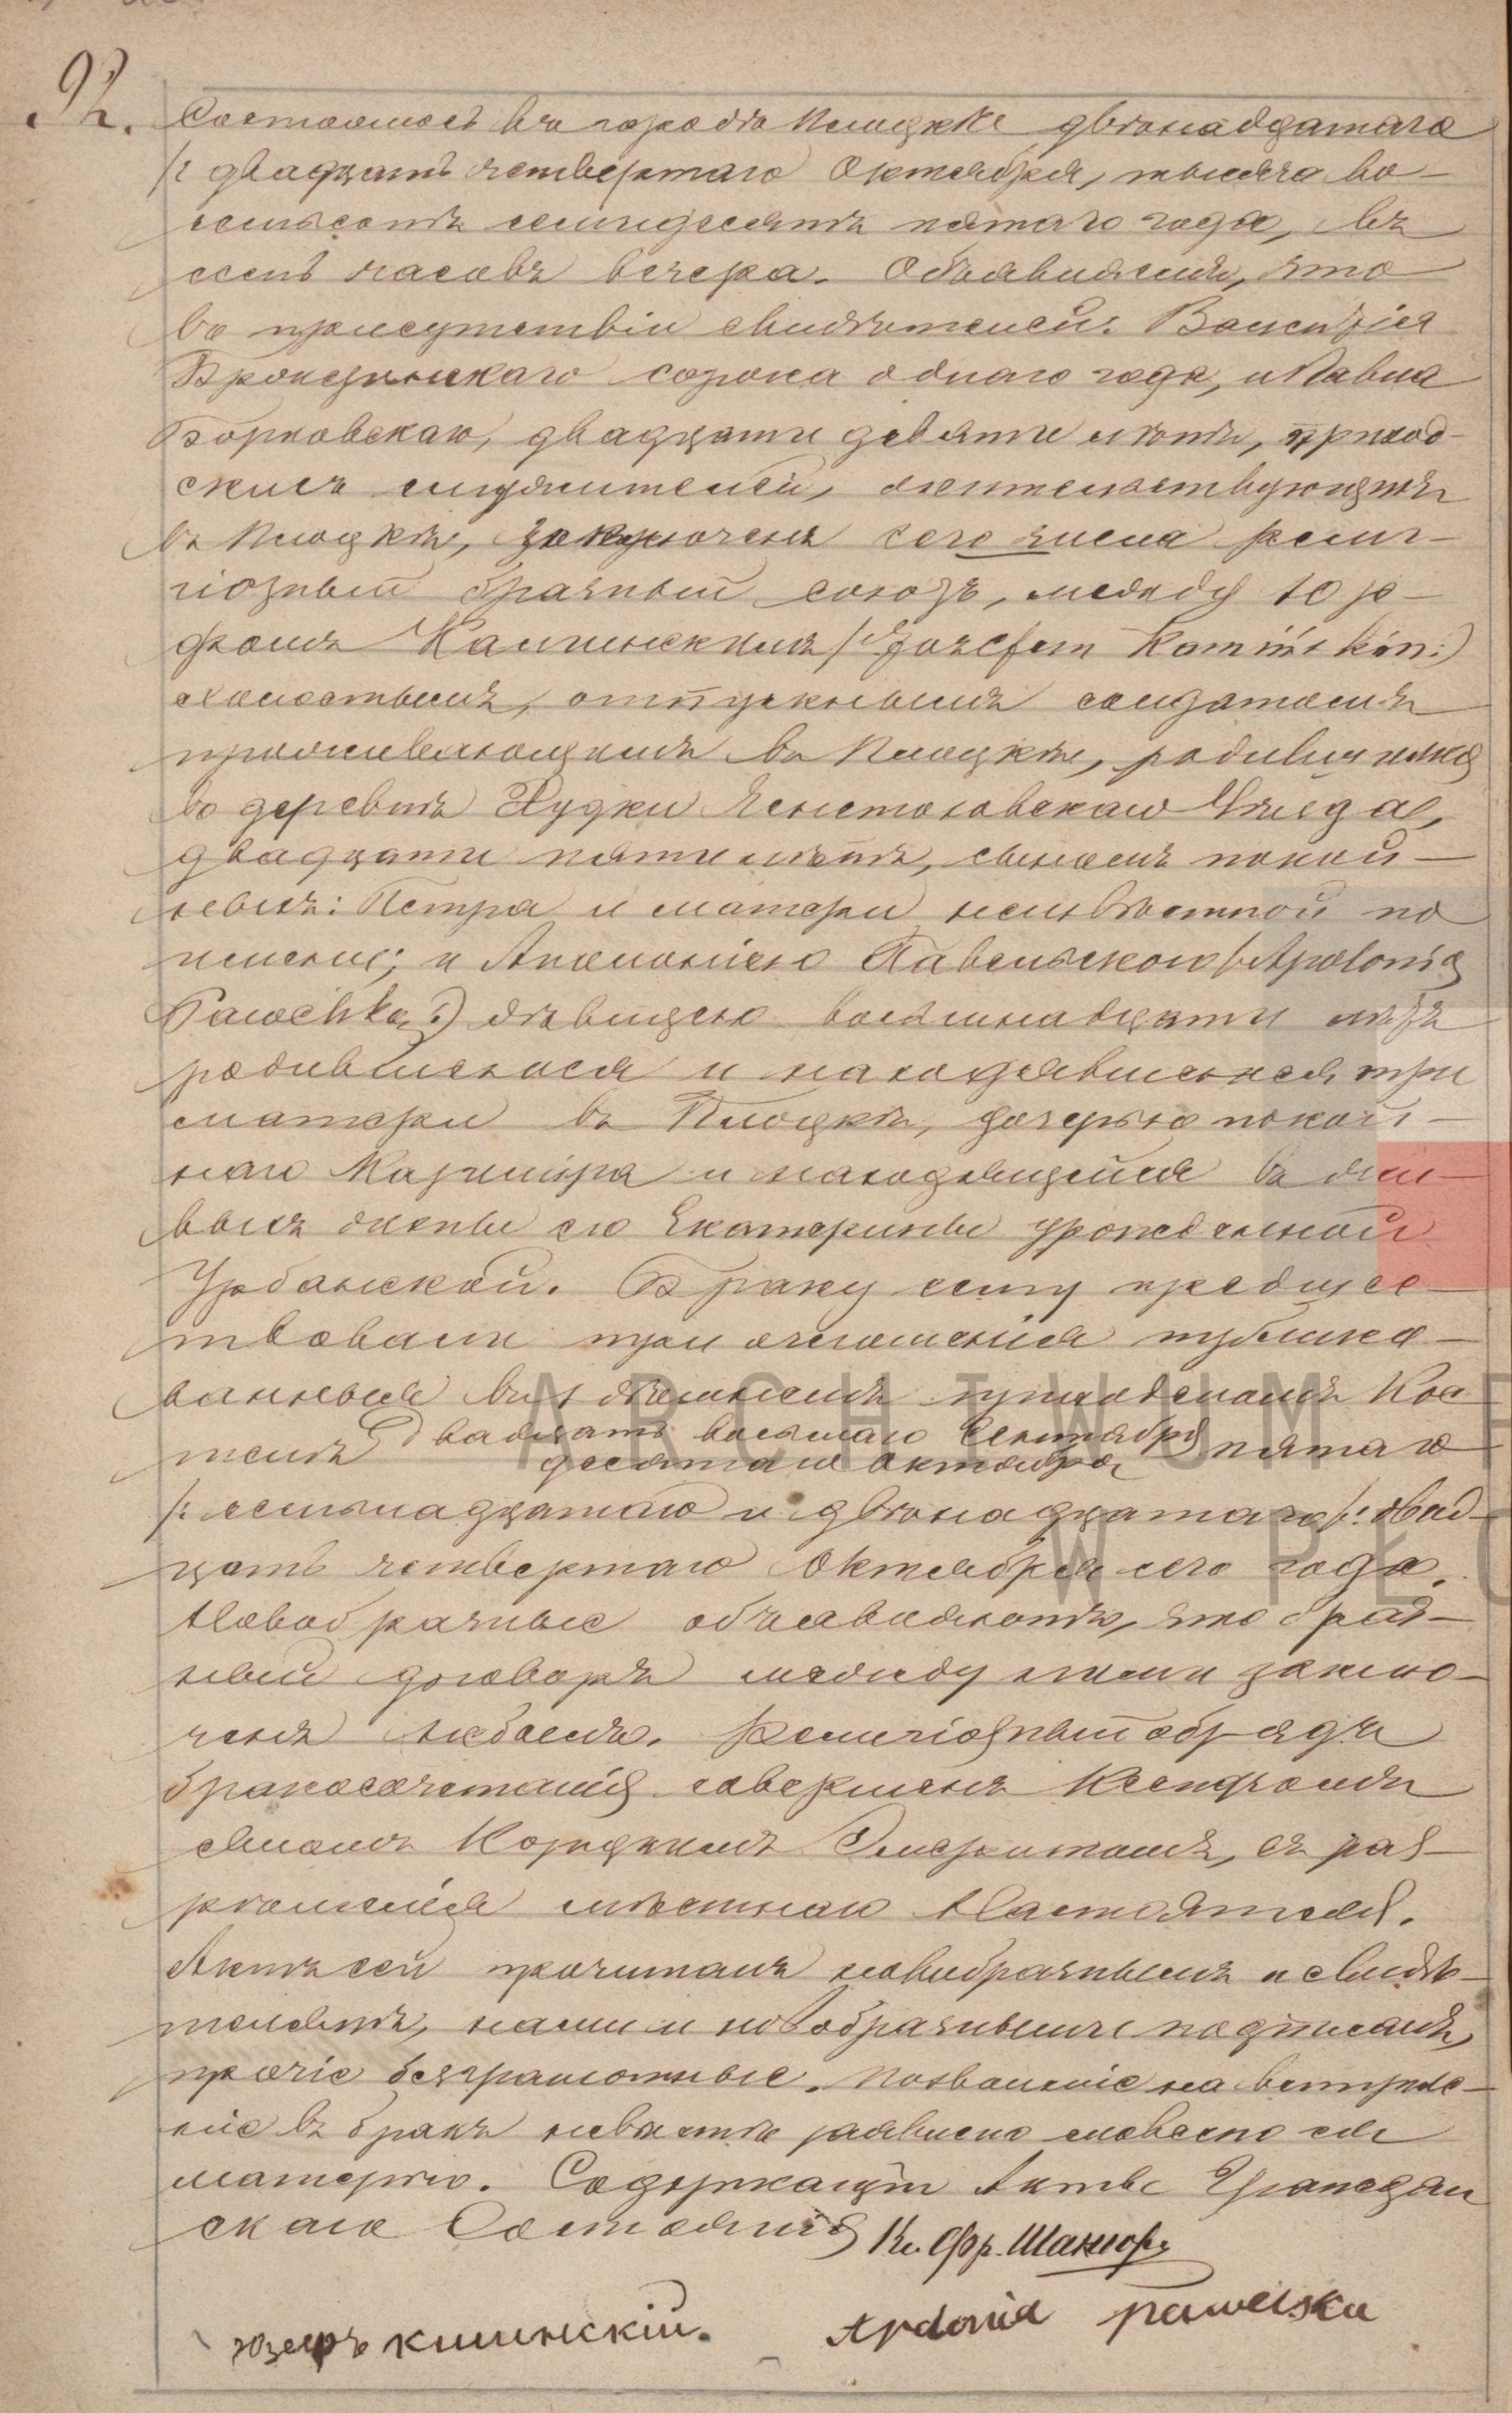 92.
Состоялось въ городѣ Плоцкѣ двѣнадцатаго
/: двадцать четвертаго Октября, тысяча во-
семьсотъ семидесятъ пятаго года, въ
семь часовъ вечера. Объявляемъ, что
въ присутствіи свидѣтелей: Валентія
сорока одного года, и Павла
Борковскаго, двадцати девяти лѣтъ, приход-
скихъ служителей, жительствующихъ
въ Плоцкѣ, заключенъ сего числа рели-
гіозный брачный союзъ, между Юзе-
фомъ Каминскимъ /: Józefem Kamińskim :)
холостымъ, отпускнымъ солдатомъ
проживающимъ въ Плоцкѣ, родившимся
въ деревнѣ Дудки Уѣзда,
двадцати пяти лѣтъ, сыномъ покой-
ныхъ: Петра и матери неизвѣстной по
имени; и Аполоніею Павельскою /: Apolonią
Pawelską :) дѣвицею восемнадцати лѣтъ
родившеюся и находившеюся при
матери въ Плоцкѣ, дочерью покой-
наго Казиміра и находящейся въ жи-
выхъ жены его Екатерины урожденной
Урбанской. Браку сему предшес-
твовали три оглашенія публико-
ванныя въ здѣшнемъ приходскомъ Кос-
телѣ двадцать восьмаго Сентября пятаго
десятаго Октября
/: семнадцатаго и двѣнадцатаго /: двад-
цать четвертаго Октября сего года.
Новобрачные объявляютъ, что брач-
ный договоръ между ними заклю-
ченъ небылъ. Религіозный обрядъ
бракосочетанія совершенъ Ксендзомъ
Эмеритомъ, съ раз-
рѣшенія мѣстнаго Настоятеля.
Актъ сей прочитанъ новобрачнымъ и свидѣ-
телямъ, нами и новобрачными подписанъ,
прочіе безграмотные. Позволеніе на вступле-
ніе въ бракъ невѣстѣ заявлено словесно ея
матерью. Содержащій Акты Граждан
скаго Состоянія Кс. Фр.
Юзефъ Apolonia Pawelska